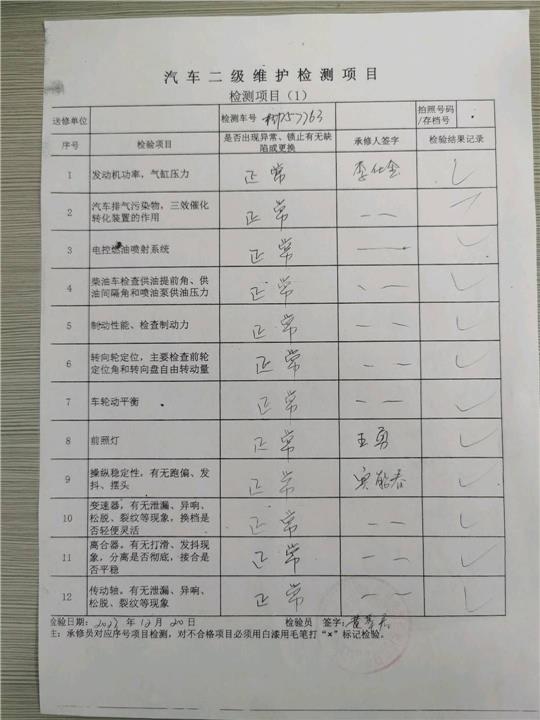 汽车二级维护检测项目
检测项目（1）
送修单位 检测车号 拍照号码/存档号
序号 检验项目 是否出现异常、锁止有无缺陷或更换 承修人签字 检验结果记录
1 发动机功率，气缸压力 正常 ✓
2 汽车排气污染物，三效催化转化装置的作用 正常 — — ✓
3 电控燃油喷射系统 正常 — — ✓
4 柴油车检查供油提前角、供油间隔角和喷油泵供油压力 正常 — — ✓
5 制动性能、检查制动力 正常 — — ✓
6 转向轮定位，主要检查前轮定位角和转向盘自由转动量 正常 — — ✓
7 车轮动平衡 正常 — — ✓
8 前照灯 正常 王勇 ✓
9 操纵稳定性，有无跑偏、发抖、摆头 正常 ✓
10 变速器，有无泄漏、异响、松脱、裂纹等现象，换档是否轻便灵活 正常 — — ✓
11 离合器。有无打滑、发抖现象，分离是否彻底，接合是否平稳 正常 — — ✓
12 传动轴。有无泄漏、异响、松脱、裂纹等现象 正常 — — ✓
检验日期： 年12月20日 检验员 签字：
主：承修员对应序号项目检测，对不合格项目必须用白漆用毛笔打“×”标记检验。